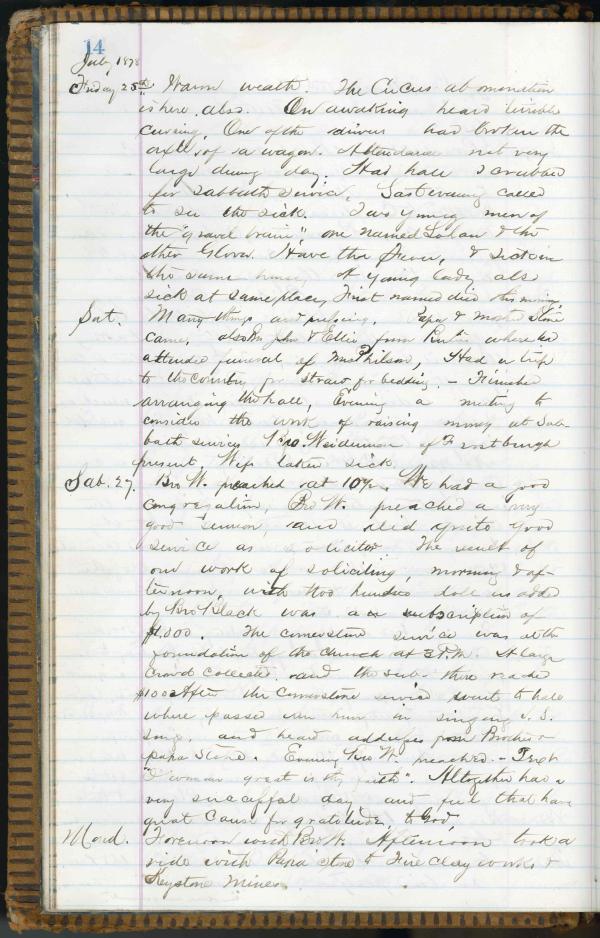 14
July, 1878
Friday 25th Warm weath. The Circus abomination
is here also. On awaking heard terrible
cursing. One of the drivers had broken the
axle of a wagon. Attendance not very
large during day. Had hall scrubbed
for Sabbath service. Last evening called
to see the sick. Two young men of
the "gravel train" one named Lolan & the
other Glover. Have the fever, & sick in
the same house. A young lady also
sick at same place, First named died this morning.
Sat. Many things are pressing. Papa & mother Stone
came, also Bro John & Ellie from where he
attended funeral of McPhilson, Had a trip
to the country for straw for bedding. - Finished
arranging the hall, Evening a meeting to
consider the work of raising money at Sab-
bath service Bro. Weidenman of Frostburgh
present. Wife taken sick
Sab. 27. Bro W. preached at 10½. We had a good
congregation, Bro W. preached a very
good sermon, and did quite good
service as solicitor. The result of
our work of soliciting, morning & af-
ternoon, with two hundred doll us added
by Bro Black was a subscription of
$1,000. The cornerstone service was at the
foundation of the church at 3 P.M. A large
crowd collected and the sub- there reached
$100 After the cornerstone service went to hall
where passed an hour in singing S. S.
songs, and heard addresses from Brother &
papa Stone. Evening Bro W. preached. - Text
"O woman great is thy faith". Altogether had a
very successful day, and feel that have
great cause for gratitude, to God,
Mond. Forenoon with Bro W. Afternoon took a
ride with Papa Stone to Fire Clay works &
Keystone Mines